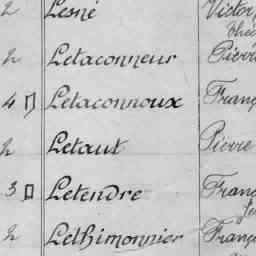 2 Lesné Victor
Théo
2 Letaconneur Pierre
4 Letaconnoux Franç
2 Letaut Pierre
3 Letendre Franç
2 Lethimonnier Franç